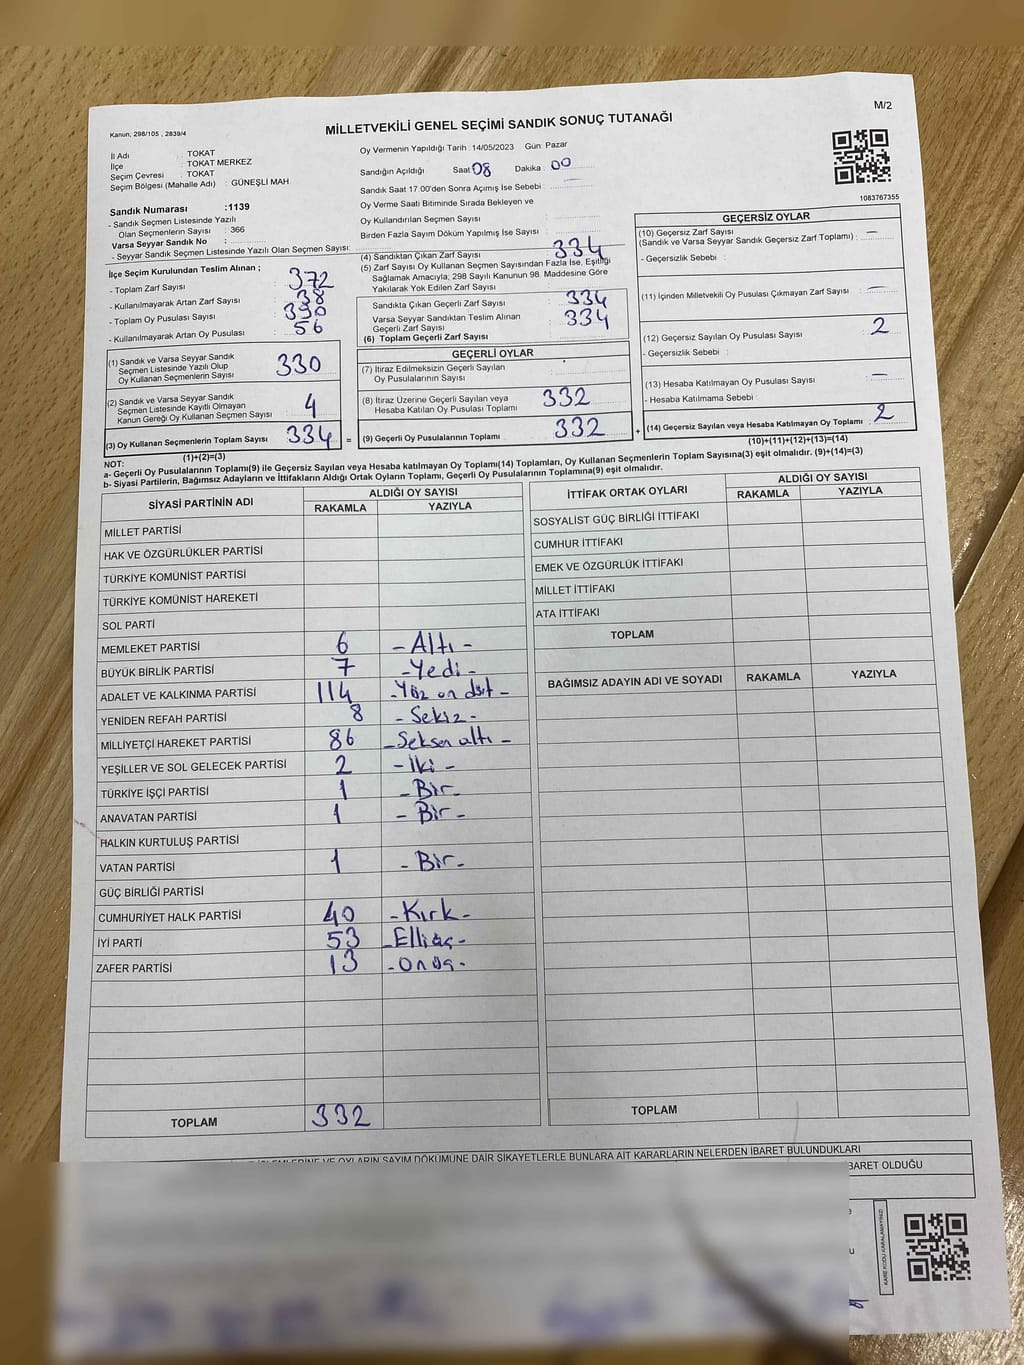 M/2
Kanun, 298/105 , 2839/4
MİLLETVEKİLİ GENEL SEÇİMİ SANDIK SONUÇ TUTANAĞI
İl Adı : TOKAT
İlçe : TOKAT MERKEZ
Seçim Çevresi : TOKAT
Seçim Bölgesi (Mahalle Adı) : GÜNEŞLİ MAH
Oy Vermenin Yapıldığı Tarih : 14/05/2023 Gün: Pazar
Sandığın Açıldığı Saat 08 Dakika : 00
Sandık Saat 17.00'den Sonra Açımış İse Sebebi :
Oy Verme Saati Bitiminde Sırada Bekleyen ve
Oy Kullandırılan Seçmen Sayısı :
Birden Fazla Sayım Döküm Yapılmış İse Sayısı :
1083767355
Sandık Numarası :1139
- Sandık Seçmen Listesinde Yazılı
Olan Seçmenlerin Sayısı : 366
Varsa Seyyar Sandık No :
- Seyyar Sandık Seçmen Listesinde Yazılı Olan Seçmen Sayısı:
İlçe Seçim Kurulundan Teslim Alınan ;
- Toplam Zarf Sayısı : 372
- Kullanılmayarak Artan Zarf Sayısı : 38
- Toplam Oy Pusulası Sayısı : 390
- Kullanılmayarak Artan Oy Pusulası : 56
(1) Sandık ve Varsa Seyyar Sandık
Seçmen Listesinde Yazılı Olup
Oy Kullanan Seçmenlerin Sayısı 330
(2) Sandık ve Varsa Seyyar Sandık
Seçmen Listesinde Kayıtlı Olmayan
Kanun Gereği Oy Kullanan Seçmen Sayısı : 4
(3) Oy Kullanan Seçmenlerin Toplam Sayısı 334 =
(1)+(2)=(3)
(4) Sandıktan Çıkan Zarf Sayısı : 334
(5) Zarf Sayısı Oy Kullanan Seçmen Sayısından Fazla İse, Eşitliği
Sağlamak Amacıyla; 298 Sayılı Kanunun 98. Maddesine Göre
Yakılarak Yok Edilen Zarf Sayısı :
Sandıkta Çıkan Geçerli Zarf Sayısı : 334
Varsa Seyyar Sandıktan Teslim Alınan
Geçerli Zarf Sayısı : 334
(6) Toplam Geçerli Zarf Sayısı :
GEÇERLİ OYLAR
(7) İtiraz Edilmeksizin Geçerli Sayılan
Oy Pusulalarının Sayısı :
(8) İtiraz Üzerine Geçerli Sayılan veya
Hesaba Katılan Oy Pusulası Toplamı : 332
(9) Geçerli Oy Pusulalarının Toplamı : 332 +
GEÇERSİZ OYLAR
(10) Geçersiz Zarf Sayısı
(Sandık ve Varsa Seyyar Sandık Geçersiz Zarf Toplamı) : –
- Geçersizlik Sebebi :
(11) İçinden Milletvekili Oy Pusulası Çıkmayan Zarf Sayısı : –
(12) Geçersiz Sayılan Oy Pusulası Sayısı : 2
- Geçersizlik Sebebi :
(13) Hesaba Katılmayan Oy Pusulası Sayısı : –
- Hesaba Katılmama Sebebi :
(14) Geçersiz Sayılan veya Hesaba Katılmayan Oy Toplamı : 2
(10)+(11)+(12)+(13)=(14)
NOT:
a- Geçerli Oy Pusulalarının Toplamı(9) ile Geçersiz Sayılan veya Hesaba katılmayan Oy Toplamı(14) Toplamları, Oy Kullanan Seçmenlerin Toplam Sayısına(3) eşit olmalıdır. (9)+(14)=(3)
b- Siyasi Partilerin, Bağımsız Adayların ve İttifakların Aldığı Ortak Oyların Toplamı, Geçerli Oy Pusulalarının Toplamına(9) eşit olmalıdır.
SİYASİ PARTİNİN ADI ALDIĞI OY SAYISI
RAKAMLA YAZIYLA
MİLLET PARTİSİ
HAK VE ÖZGÜRLÜKLER PARTİSİ
TÜRKİYE KOMÜNİST PARTİSİ
TÜRKİYE KOMÜNİST HAREKETİ
SOL PARTİ
MEMLEKET PARTİSİ 6 - Altı -
BÜYÜK BİRLİK PARTİSİ 7 - Yedi -
ADALET VE KALKINMA PARTİSİ 114 - Yüz on dört -
YENİDEN REFAH PARTİSİ 8 - Sekiz -
MİLLİYETÇİ HAREKET PARTİSİ 86 - Seksen altı -
YEŞİLLER VE SOL GELECEK PARTİSİ 2 - İki -
TÜRKİYE İŞÇİ PARTİSİ 1 - Bir -
ANAVATAN PARTİSİ 1 - Bir -
HALKIN KURTULUŞ PARTİSİ
VATAN PARTİSİ 1 - Bir -
GÜÇ BİRLİĞİ PARTİSİ
CUMHURİYET HALK PARTİSİ 40 - Kırk -
İYİ PARTİ 53 - Elliüç -
ZAFER PARTİSİ 13 - Onüç -
TOPLAM 332
İTTİFAK ORTAK OYLARI ALDIĞI OY SAYISI
RAKAMLA YAZIYLA
SOSYALİST GÜÇ BİRLİĞİ İTTİFAKI
CUMHUR İTTİFAKI
EMEK VE ÖZGÜRLÜK İTTİFAKI
MİLLET İTTİFAKI
ATA İTTİFAKI
TOPLAM
BAĞIMSIZ ADAYIN ADI VE SOYADI RAKAMLA YAZIYLA
TOPLAM
İŞLEMLERİNE VE OYLARIN SAYIM DÖKÜMÜNE DAİR ŞİKAYETLERLE BUNLARA AİT KARARLARIN NELERDEN İBARET BULUNDUKLARI
BARET OLDUĞU
KARE KODU KARALAMAYINIZ!